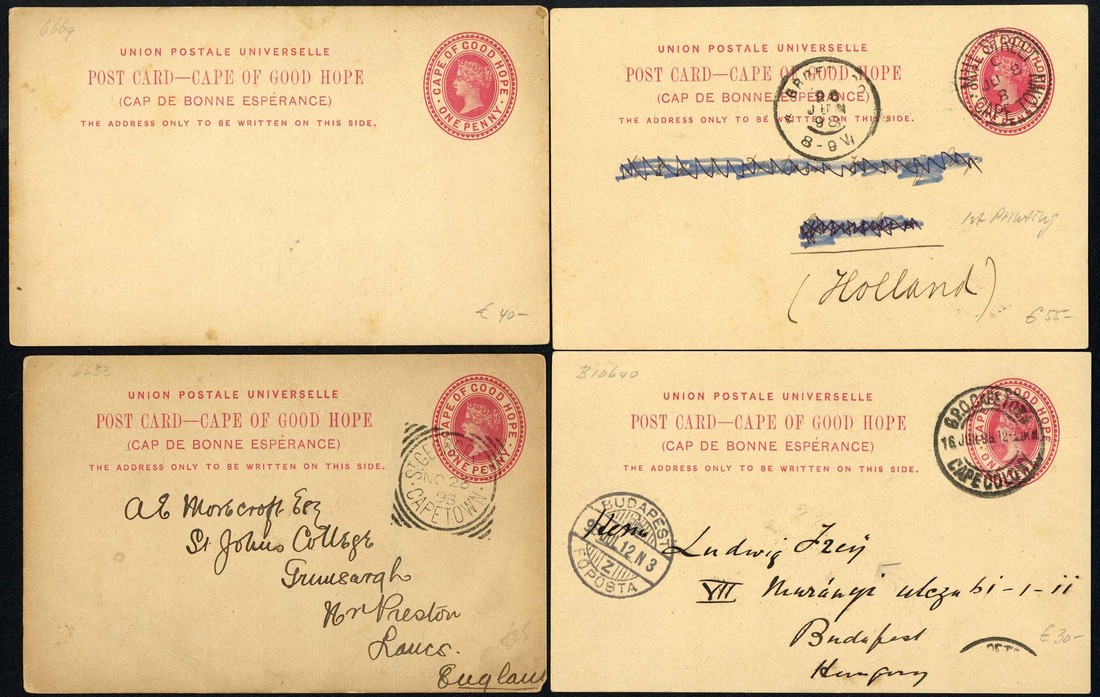 6669
UNION POSTALE UNIVERSELLE
POST CARD—CAPE OF GOOD HOPE
(CAP DE BONNE ESPÉRANCE)
THE ADDRESS ONLY TO BE WRITTEN ON THIS SIDE.
CAPE OF GOOD HOPE
ONE PENNY
€ 40-
UNION POSTALE UNIVERSELLE
POST CARD—CAPE OF GOOD HOPE
(CAP DE BONNE ESPÉRANCE)
THE ADDRESS ONLY TO BE WRITTEN ON THIS SIDE.
26
JUN
98
8-9 V
1st Printing
(Holland)
€ 55-
6633
UNION POSTALE UNIVERSELLE
POST CARD—CAPE OF GOOD HOPE
(CAP DE BONNE ESPÉRANCE)
THE ADDRESS ONLY TO BE WRITTEN ON THIS SIDE.
CAPE OF GOOD HOPE
ONE PENNY
NO 23
96
CAPETOWN
AE Morecroft Esq
St Johns College
Grimsargh
Nr Preston
Lancs.
England
B10640
UNION POSTALE UNIVERSELLE
POST CARD—CAPE OF GOOD HOPE
(CAP DE BONNE ESPÉRANCE)
THE ADDRESS ONLY TO BE WRITTEN ON THIS SIDE.
CAPE COLONY
BUDAPEST
12 N 3
Z
FŐPOSTA
Herrn Ludwig Frey
VII Murányi utcza 61-1-11
Budapest
Hungary
€ 30-